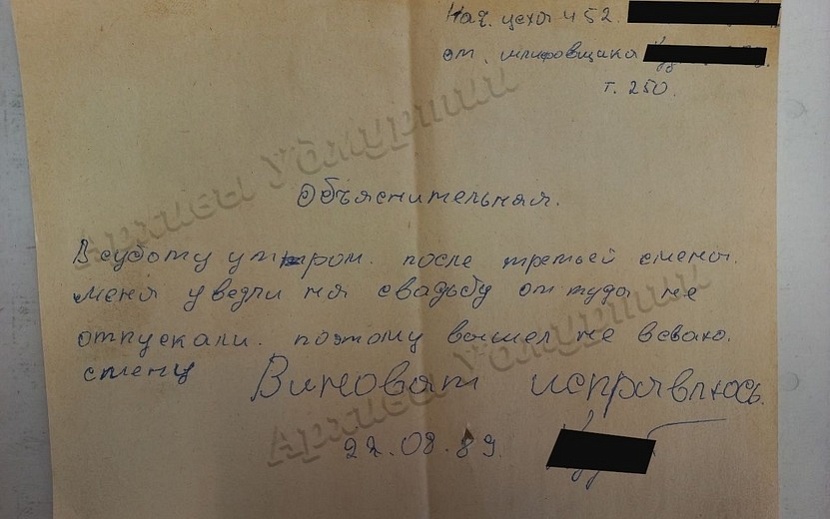 Нач. цеха ч 52.
от. шлифовщика
т. 250.
Объяснительная.
В суботу утром. после третьей смены.
меня увезли на свадьбу оттуда не
отпускали. поэтому вышел не всваю.
смену Виноват исправлюсь.
22.08.89.
Архивы Удмуртии
Архивы Удмуртии